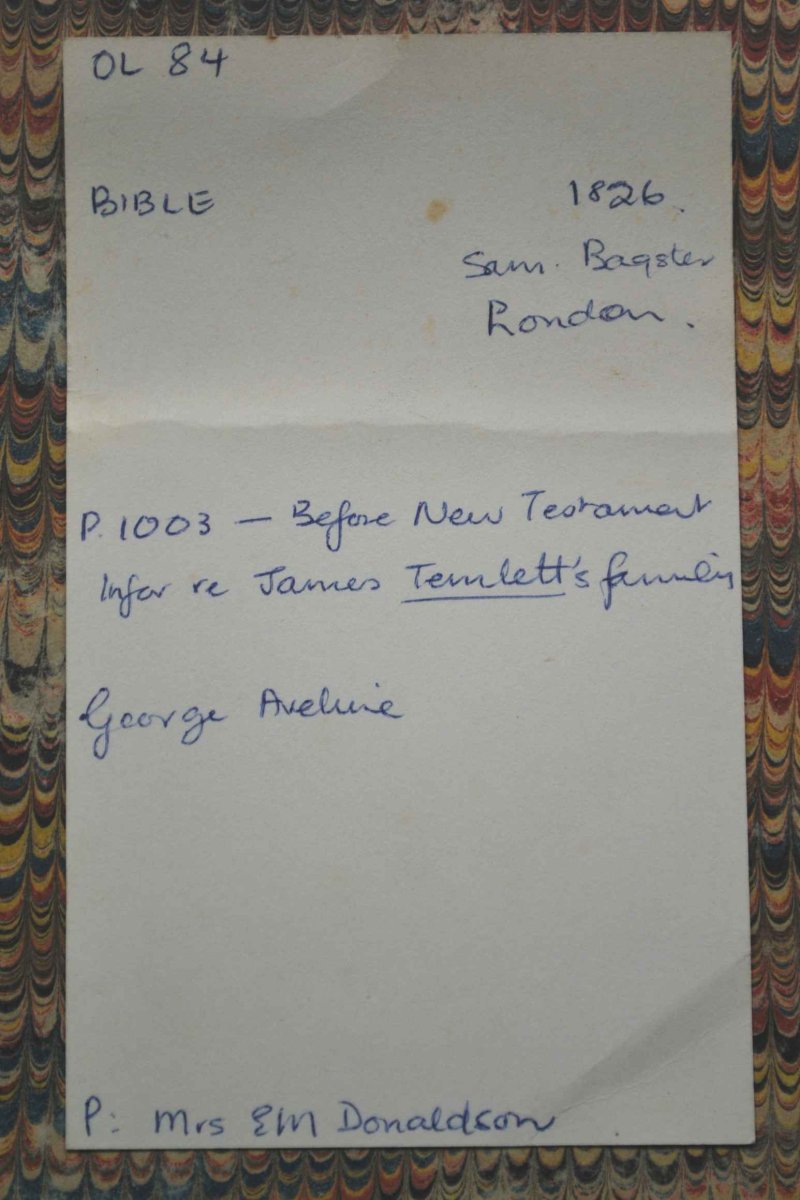 OL 84
BIBLE 1826.
Sam. Bagster
London.
P. 1003 — Before New Testament
Infor re James Temlett's family
George
P: Mrs EM Donaldson